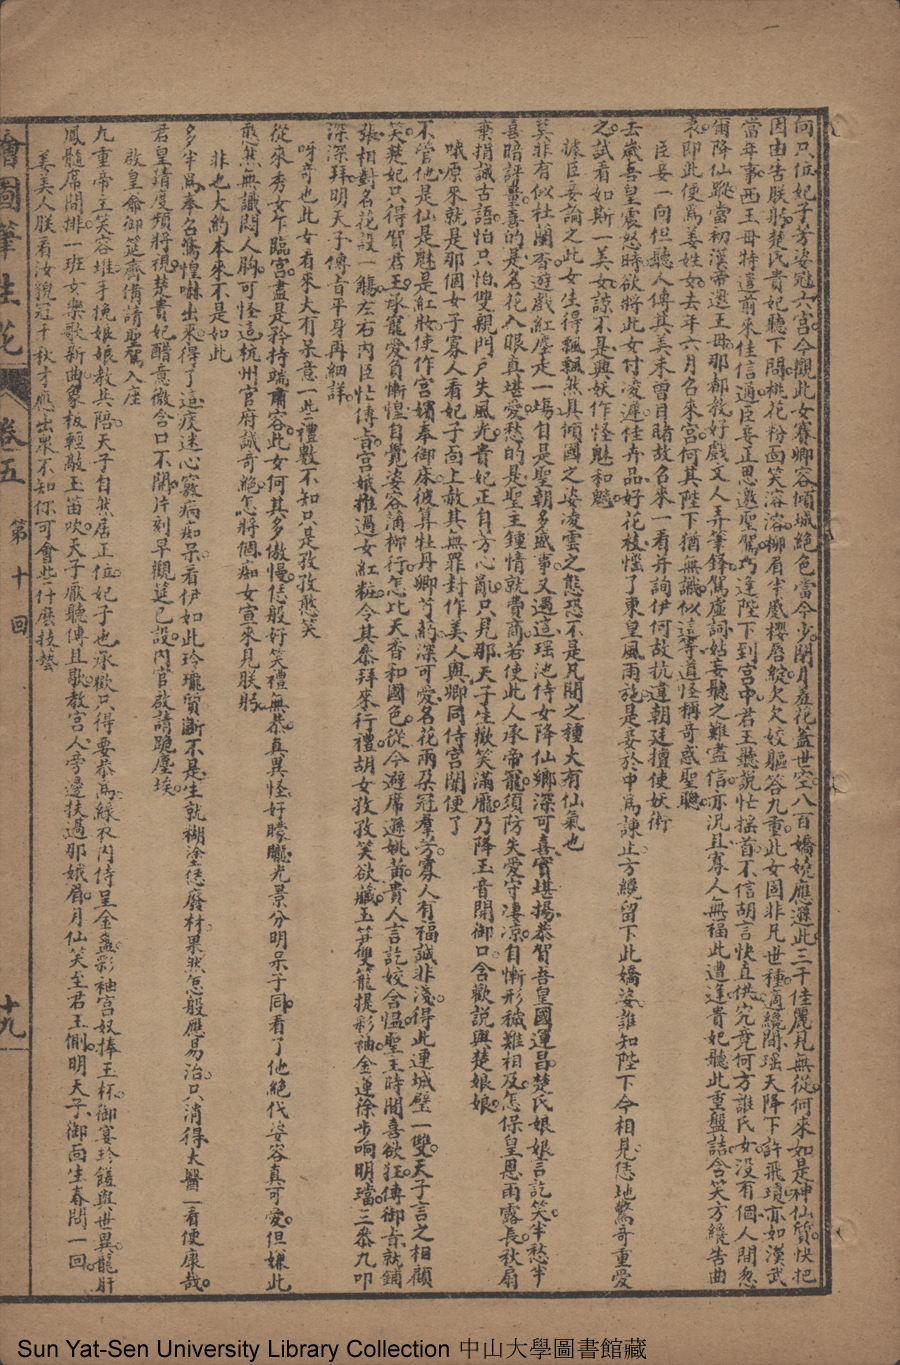 向只位妃子芳姿冠六宮今觀此女賽卿容傾城絕色當今少閉月羞花蓋世空八百嬌嬈應遜此三千佳麗見無從何來如是神仙質快把
因由告朕躬楚氏貴妃聽下問桃花粉面笑溶溶柳眉半蹙櫻唇綻欠欠姣軀答九重此女固非凡世種適纔間瑶天降下許飛瓊亦如漢武
當年事西王母特遣前來佳信通臣妾正思邀聖駕為逢陛下到宮中君王聽說忙搖首不信胡言快直供究竟何方誰氏女没有個人間忽
爾降仙蹤當初漢帝邀王母那都教好戲文人弄筆鋒駕虛詞姑妄聽之難盡信亦况且寡人無福此遭逢貴妃聽此重盤詰含笑方纔告曲
衷即此便爲姜姓女去年六月名來宮何其陛下猶無識似這等道怪稱奇惑聖聰
臣妾一向但聽人傳其美未曾目睹故名來一看弁詞伊何故抗違朝廷擅使妖術
去歲吾皇震怒時欲將此女付凌遲佳卉品好花枝惱了東皇風雨施是妾於中爲諫止方纔留下此嬌姿誰知陛下今相見恁地驚奇重愛
之試看如斯一美女諒不是興妖作怪魅和魑
據臣妾論之此女生得飄飄然具傾國之姿凌雲之態恐不是凡間之種大有仙氣也
莫非有似社蘭香遊戲紅塵走一塲自是聖朝多盛事又遇這瑶池侍女降仙鄉深可喜實堪揚恭賀吾皇國運昌楚氏娘娘言訖笑半愁半
喜暗評量喜的是名花入眼真堪愛愁的是聖主鍾情就費商若使此人承帝寵須防失愛守凄凉自慚形穢難相及怎保皇恩雨露長秋扇
棄捐誠古語怕只怕雙親門户失風光貴妃正自方心亂只見那天子生歡笑滿龐乃降玉音開御口含歡說與楚娘娘
哦原來就是那個女子寡人看妃子面上赦其無罪封作美人與卿同侍宮闈便了
不管他是仙是魅是紅妝使作宮嬪奉御床彼算牡丹卿芍葯深可愛名花兩朶冠羣芳寡人有福誠非淺得此連城璧一雙天子言之相顧
笑楚妃只得賀君王承寵愛負慚惶自覺姿容蒲柳行怎比天香和國色從今避席遜姚黄貴人言訖姣含愠聖王時間喜欲狂傳御旨就鋪
張相對名花設一觴左右内臣忙傳旨宮娥推過女紅粧令其恭拜來行禮胡女孜孜笑欲藏玉笋雙籠提彩袖金蓮徐步响明璫三恭九叩
深深拜明天子傳旨平身再細詳
呀奇也此女看來大有呆意一些禮數不知只是孜孜憨笑
從來秀女乍臨宮盡是矜持端肅容此女何其多傲慢恁般好笑禮無恭真異怪好矇矓光景分明呆子同看了他絕代姿容真可愛但嫌此
憨然無識悶人胸可怪這杭州官府識奇絕怎將個痴女宣來見朕躬
非也大約本來不是如此
多半爲奉名驚惶嚇出來得了這痰迷心竅病痴呆看伊如此玲瓏質斷不是生就糊塗恁廢材果然怎般應易治只消得太醫一看便康哉
君皇請度頻將視楚貴妃醋意微含口不開片刻早觀筵已設内官啟請跪塵埃
啟皇爺御筵齊備請聖駕入座
九重帝王笑容堆手挽娘娘教共陪天子自然居正位妃子也承歡只得要恭爲綠衣内侍呈金盞彩袖宮奴捧玉杯御宴珍饈與世異龍肝
鳳髓席間排一班女樂歌新曲象板輕敲玉笛吹天子厭聽傳且歇教宮人旁邊扶過那娥眉月仙笑至君王側明天子御面生春問一回
姜美人朕看汝貌冠千秋才應出衆不知你可會些什麼技藝
繪圖筆生花
卷五
第十回
十九
Sun Yat-Sen University Library Collection 中山大學圖書館藏